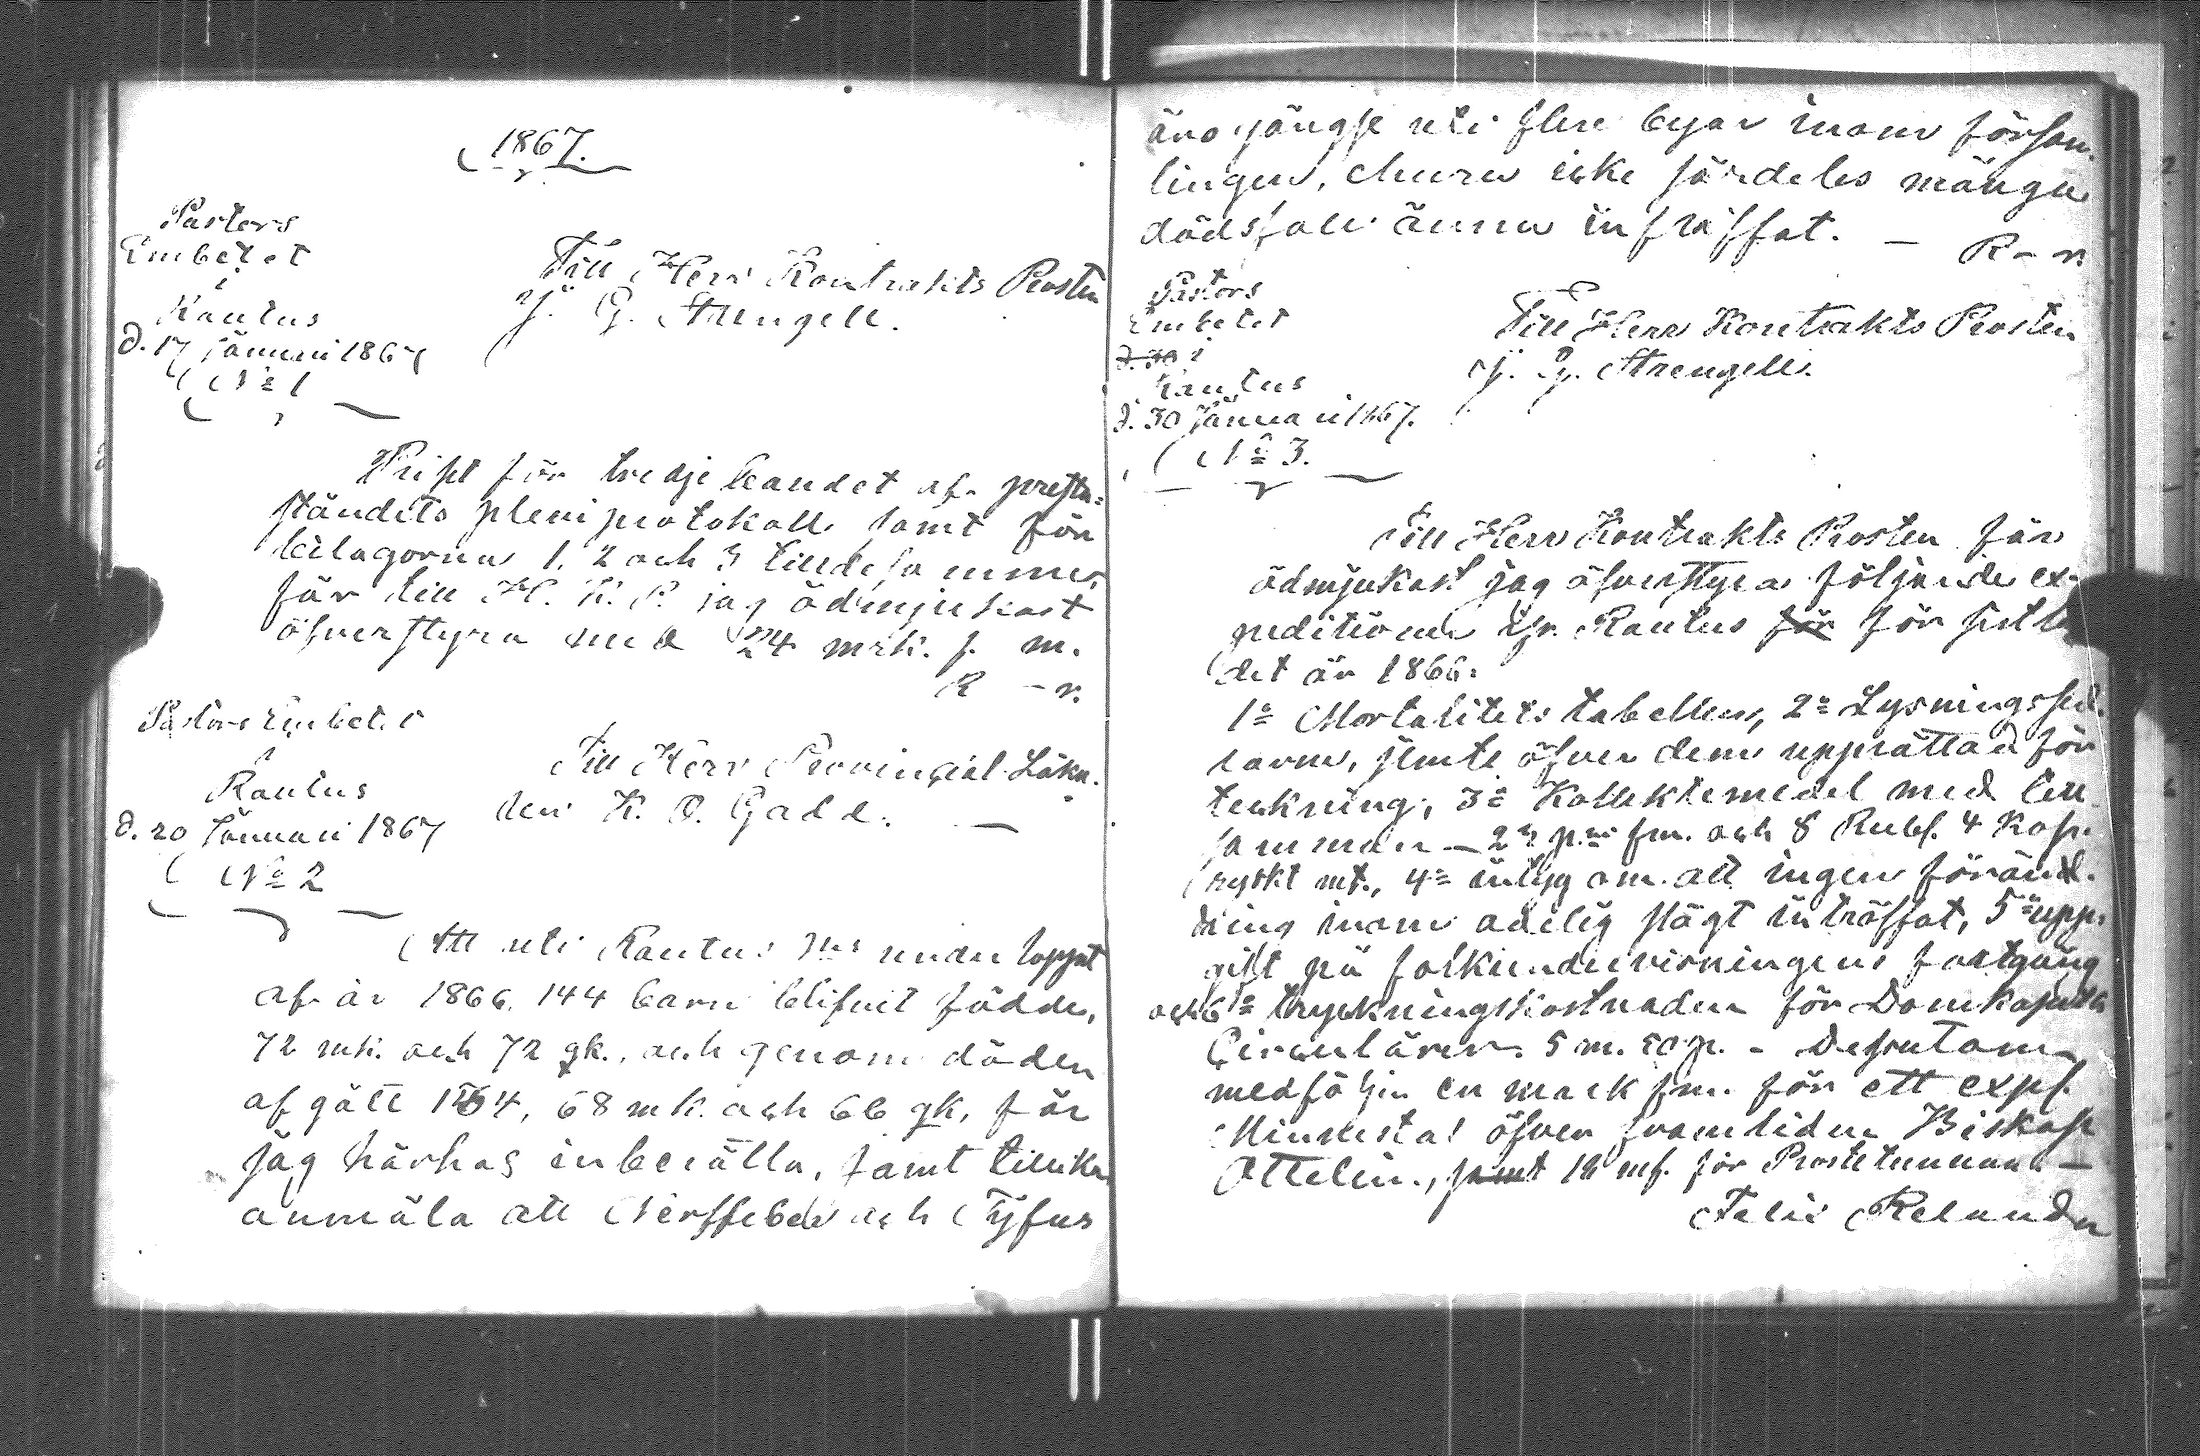 1867.
Pastors
Embetet
i
Rautus
d. 17 Januari 1867
No 1
Till Herr Kontrakts Prosten
J. G. Strengell.
Priset för tredje bandet af preste-
ståndets pleniprotokoll samt för
bilagorna 1, 2 och 3 till
får till H. K. P. jag ödmjukast
öfverstyra med 24 mrk. f. m.
R - r.
Pastors Embetet
i
Rautus
d. 20 Januari 1867
No 2
Till Herr Provincial Läka-
ren K. O. Gadd.
Att uti Rautus under loppet
af år 1866, 144 barn blifvit födde,
72 mk. och 72 qk., och genom döden
afgått 134, 68 mk. och 66 qk, får
jag härhos inberätta, samt tillika
anmäla att Nerffeber och Tyfus
äro gängse uti flere byar inom försam-
lingen, ehuru icke särdeles många
dödsfall ännu inträffat. — R - r.
Pastors
Embetet
i
Rautus
d. 30 Januari 1867.
No 3.
Till Herr Kontrakts Prosten
J. G. Strengell.
Till Herr Kontrakts Prosten får
ödmjukast jag öfverstyra följande ex-
peditioner fr. Rautus för för sistle
det år 1866:
1o Mortalitets tabellen, 2o Lysningssed-
larne, jemte öfver dem upprättad för
teckning, 3o Kollektmedel med till
samman — fm. och 8 Rubl. 4 Kop.
ryskt mt., 4o intyg om att ingen föränd-
dring inom adelig slägt inträffat, 5o upp-
gift på folkundervisningens fortgång
och 6o tryckningskostnaden för Domkapitlets
Circulärer 5 m. 50 p. - Dessutom
medföljer en mark fm. för ett expl.
Minnestal öfver framlidne Biskop
Ottelin, samt 12 mf. för Prostetunnan —
Felix Relander